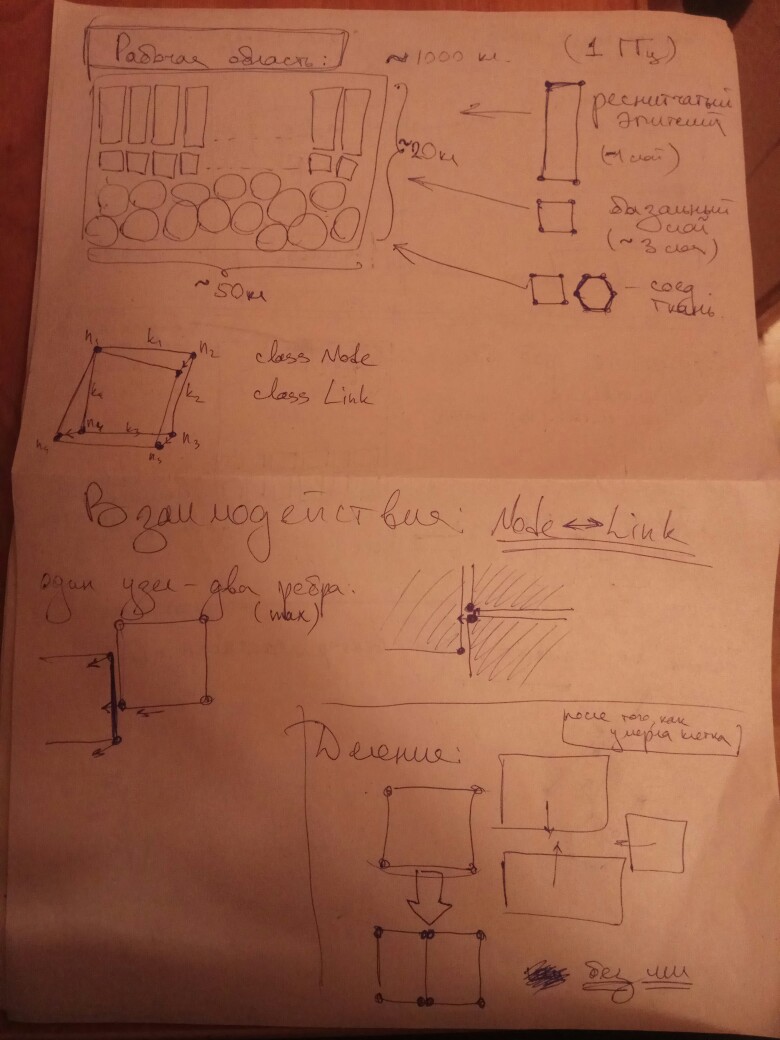 Рабочая область:
~1000 кл.
(1 ГГц)
~20кл
~50кл
реснитчатый
эпителий
(~1 слой)
базальный
слой
(~3 слоя)
- соед.
ткань
n₁ k₁ n₂
k₄ k₂
n₄ n₄ k₃ n₃
n₃
class Node
class Link
Взаимодействия: Node ↔ Link
один узел - два ребра.
(max)
Деление:
после того, как
умерла клетка
без